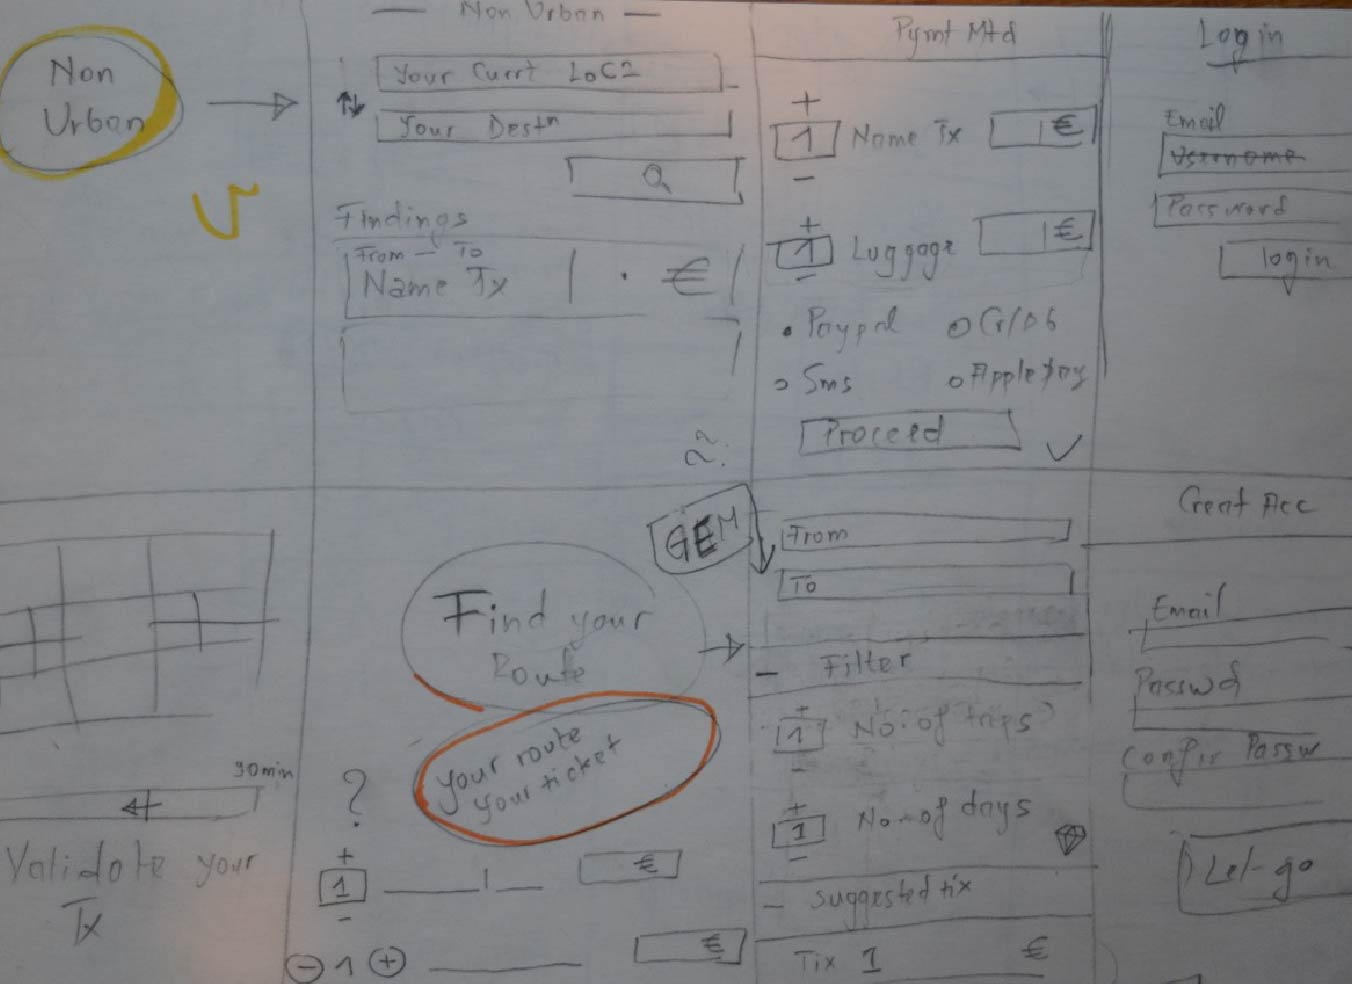 Non
Urban
— Non Urban —
Your Currt LOC
Your Destⁿ
Findings
From — To
Name Tx
€
??
Pymt Mtd
+
1 Name Tx €
−
+
1 Luggage €
−
Paypal Cr/Db
Sms Apple Pay
Proceed
Login
Email
Username
Password
login
90min
Validate your
Tx
Find your
Route
GEM
your route
your ticket
?
+
1 €
−
− 1 + €
From
To
− Filter
+
1 No. of trips?
−
+
1 No. of days
−
− Suggested tix
Tix 1 €
Creat Acc
Email
Passwd
Confir Passw
Let-go